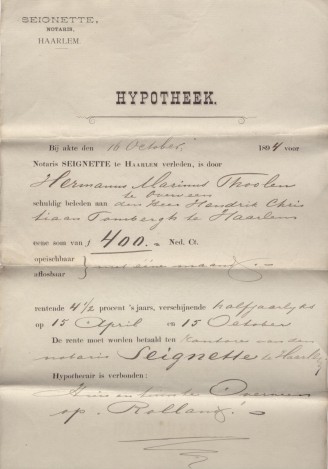 SEIGNETTE,
NOTARIS,
HAARLEM.
HYPOTHEEK.
Bij akte den 16 October 1894 voor
Notaris SEIGNETTE te HAARLEM verleden, is door
Hermanus Marinus Thoolen
te Overveen
schuldig beleden aan den Heer Hendrik Chris
tiaan Tombergh te Haarlem
eene som van f 400.— Ned. Ct.
opeischbaar
aflosbaar } met ééne maand
rentende 4 1/2 procent 's jaars, verschijnende halfjaarlijks
op 15 April en 15 October
De rente moet worden betaald ten kantore van den
notaris Seignette te Haarlem
Hypothecair is verbonden:
Huis en tuin te Overveen
op